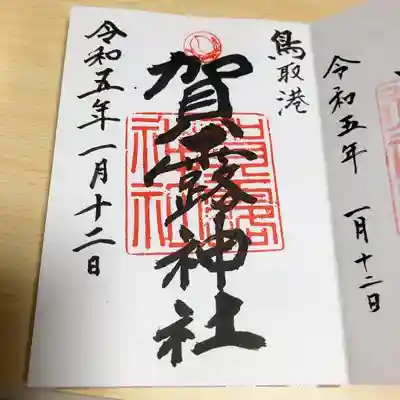 鳥取港
賀露神社
令和五年一月十二日
賀露
神社
令和五年 一月十二日